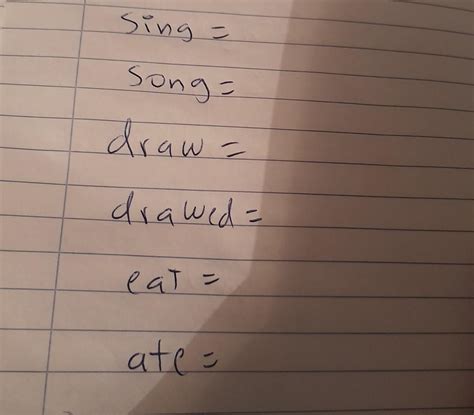 sing =
song =
draw =
drawed =
eat =
ate =